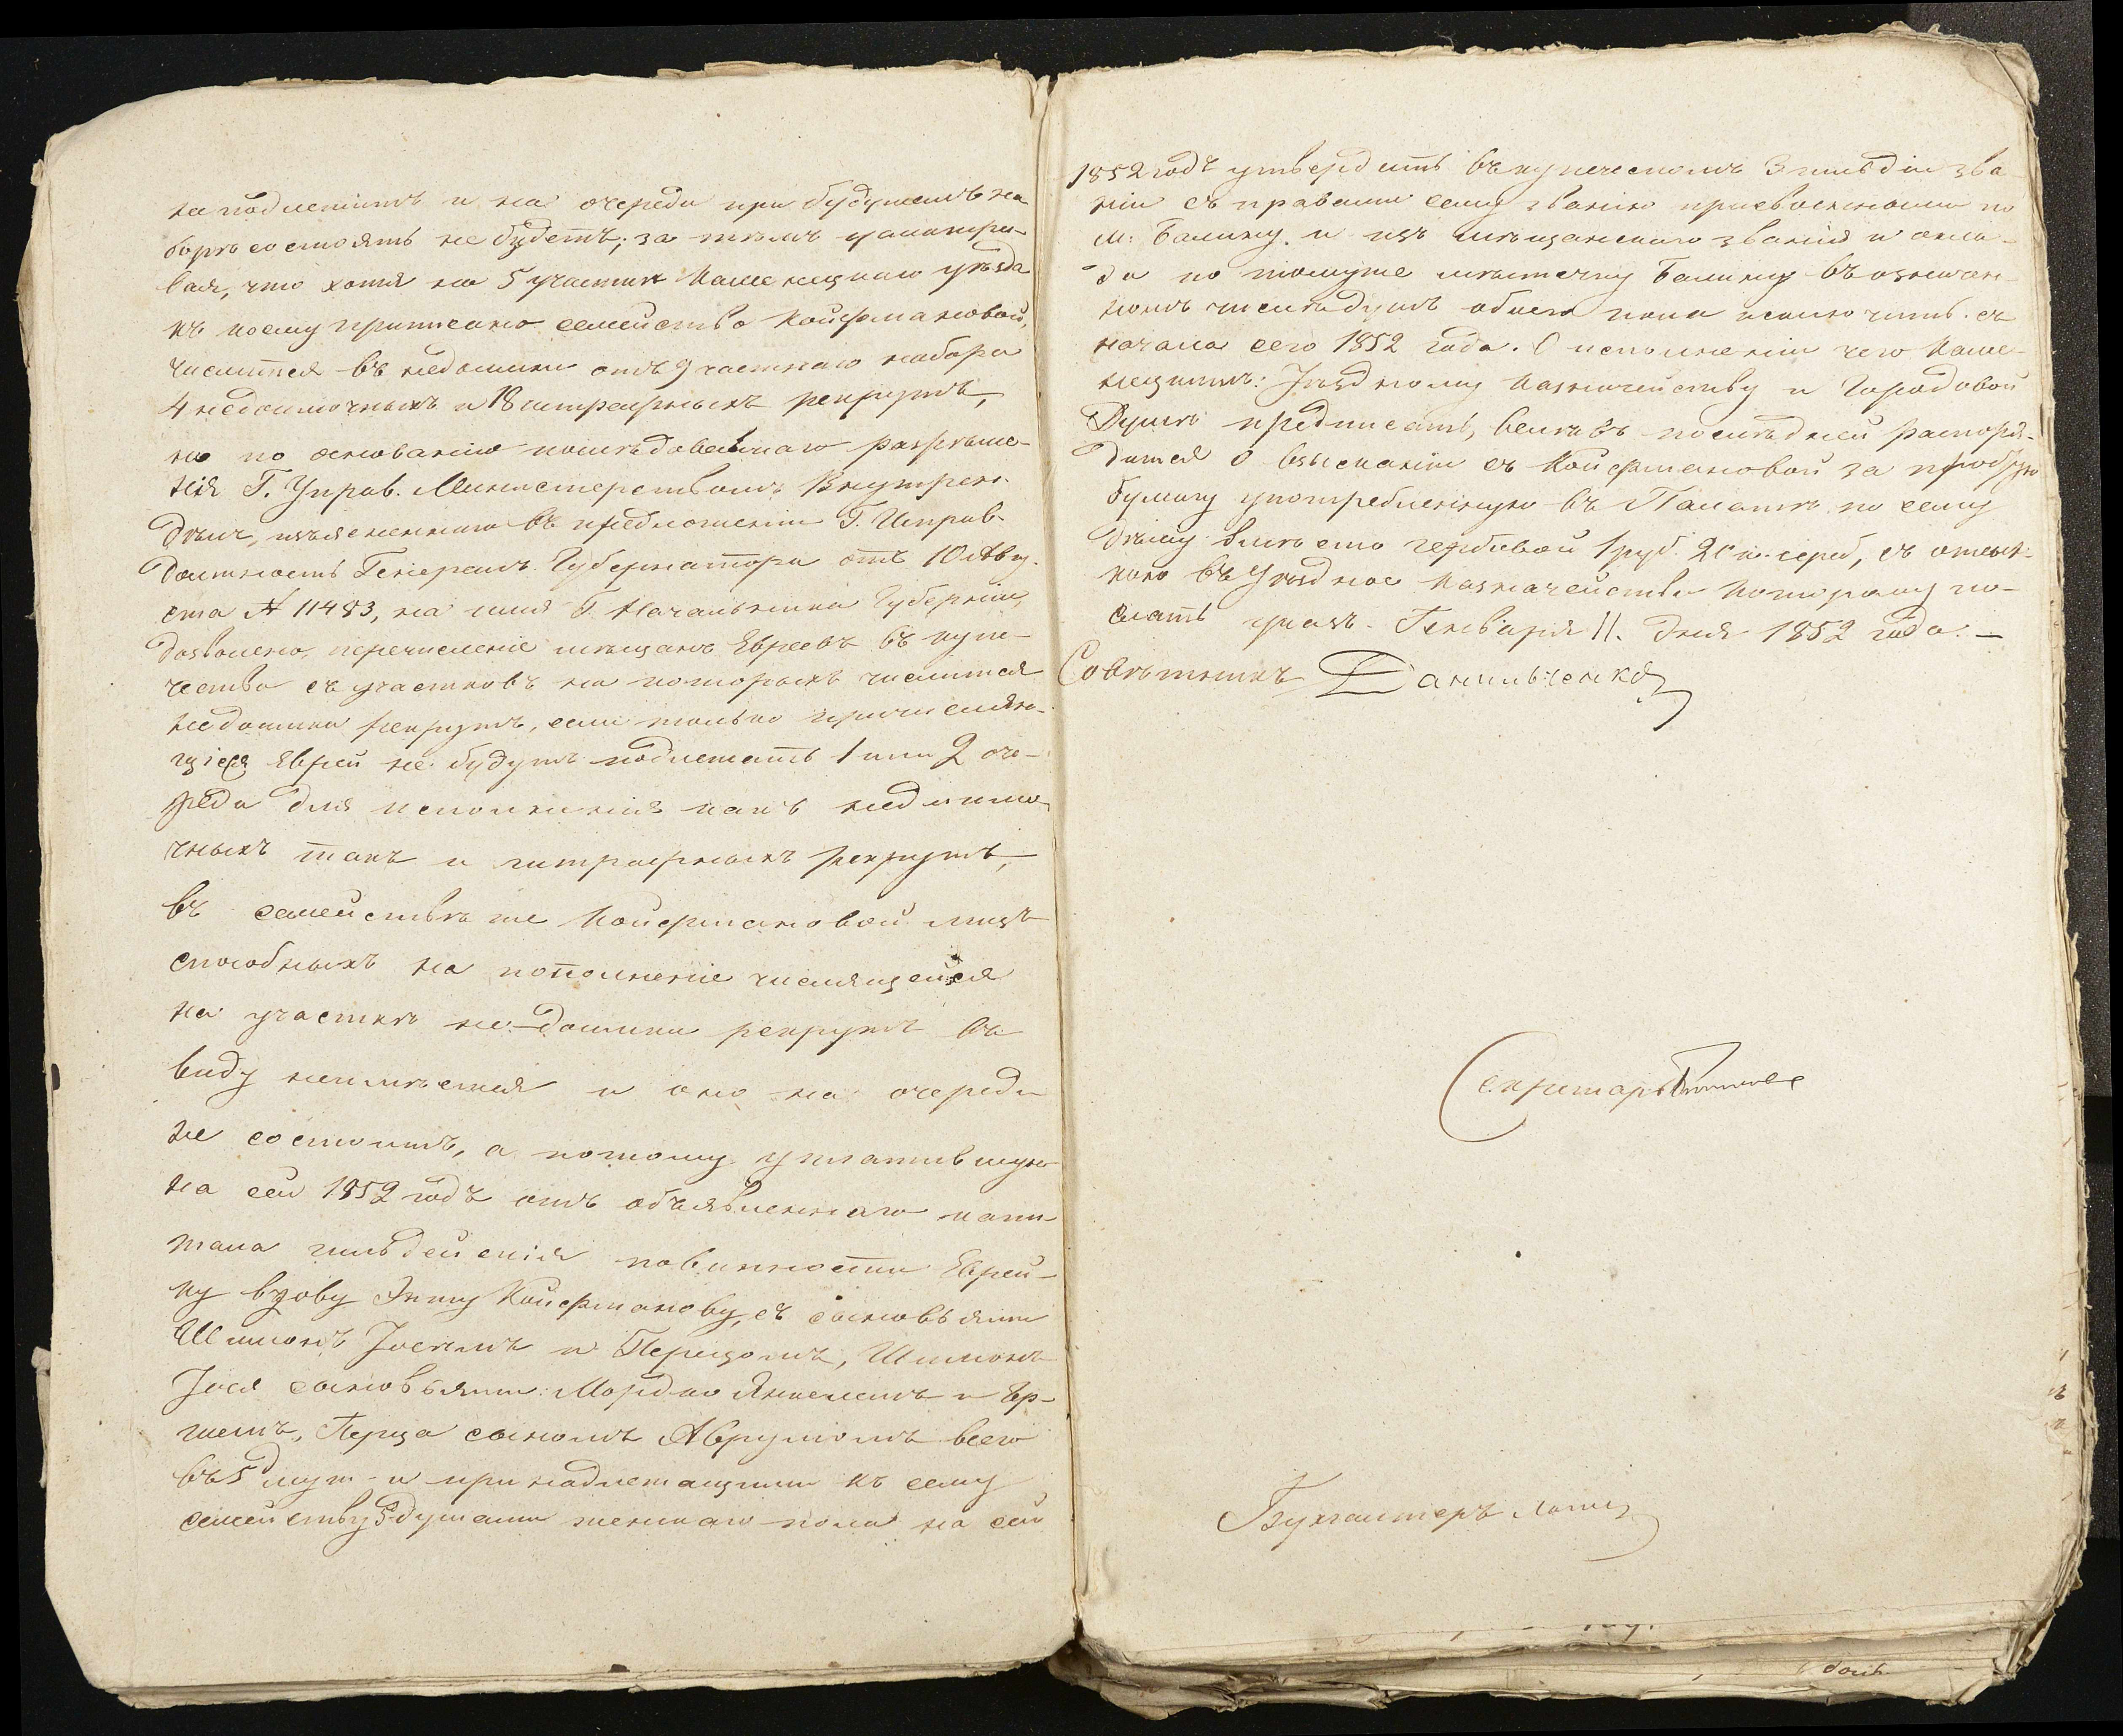 неподлежитъ и на очереди при будущемъ на
борѣ состоять не будетъ; за тѣмъ усматри-
вая, что хотя на 5 участкѣ Каменецкаго уѣзда
къ коему приписано семейство Койфмановой,
числится въ недоимки отъ участнаго набора
4 недоимочныхъ и 18 штрафныхъ рекрутъ,
но по основанію послѣдовавшаго разрѣше-
нія Г. Управ. Министерствомъ Внутрен.
дѣлъ, изъясненнаго въ предложеніи Г. Исправ.
должность Генералъ Губернатора отъ 10 Авгу-
ста № 11483, на имя Г. Начальника Губерніи,
дозволено, перечисленіе мѣщанъ Евреевъ въ купе-
чество съ участковъ на которыхъ числится
недоимка рекрутъ, если только причисляю-
щіеся Евреи не будутъ подлежать 1 или 2 оче-
реди для исполненія какъ недоимо-
чныхъ такъ и штрафныхъ рекрутъ,
въ семействѣ же Койфмановой лицъ
способныхъ на пополненіе числящейся
на участкѣ недоимки рекрутъ въ
виду неимѣется и оно на очереди
не состоитъ, а потому уплатившую
на сей 1852 годъ отъ объявленнаго капи-
тала гильдейскія повинности Еврей-
ку вдову Энту Койфманову, съ сыновьями
Шимонъ Іосемъ и Перецомъ, Шимонъ
Іося сыновьями: Мордко Янкелемъ и Бер-
шемъ, Перца сыномъ Аврумомъ всего
въ 5 душ. и принадлежащими къ сему
семейству 5 душами женскаго пола на сей
1852 годъ утвердить въ купеческомъ 3 гильдіи зва-
ніи съ правами сему званію присвоенными по
м: Балину и изъ мѣщанскаго званія и окла-
да по томуже мѣстечку Балину въ означен-
номъ числѣ душъ обоего пола исключить съ
начала сего 1852 года. О исполненіи чего Каме-
нецкимъ: Уѣздному Казначейству и Городовой
Думѣ предписать, велѣвъ послѣдней распоря-
дится о взысканіи съ Койфмановой за простую
бумагу употребленную въ Палатѣ по сему
дѣлу вмѣсто гербовой 1 руб. 20 к. сереб, съ отсыл-
кою въ Уѣздное Казначейство которому по-
слать указъ. Генваря 11. дня 1852 года. —
Совѣтникъ Данильченко
Секретарь
Бухгалтеръ